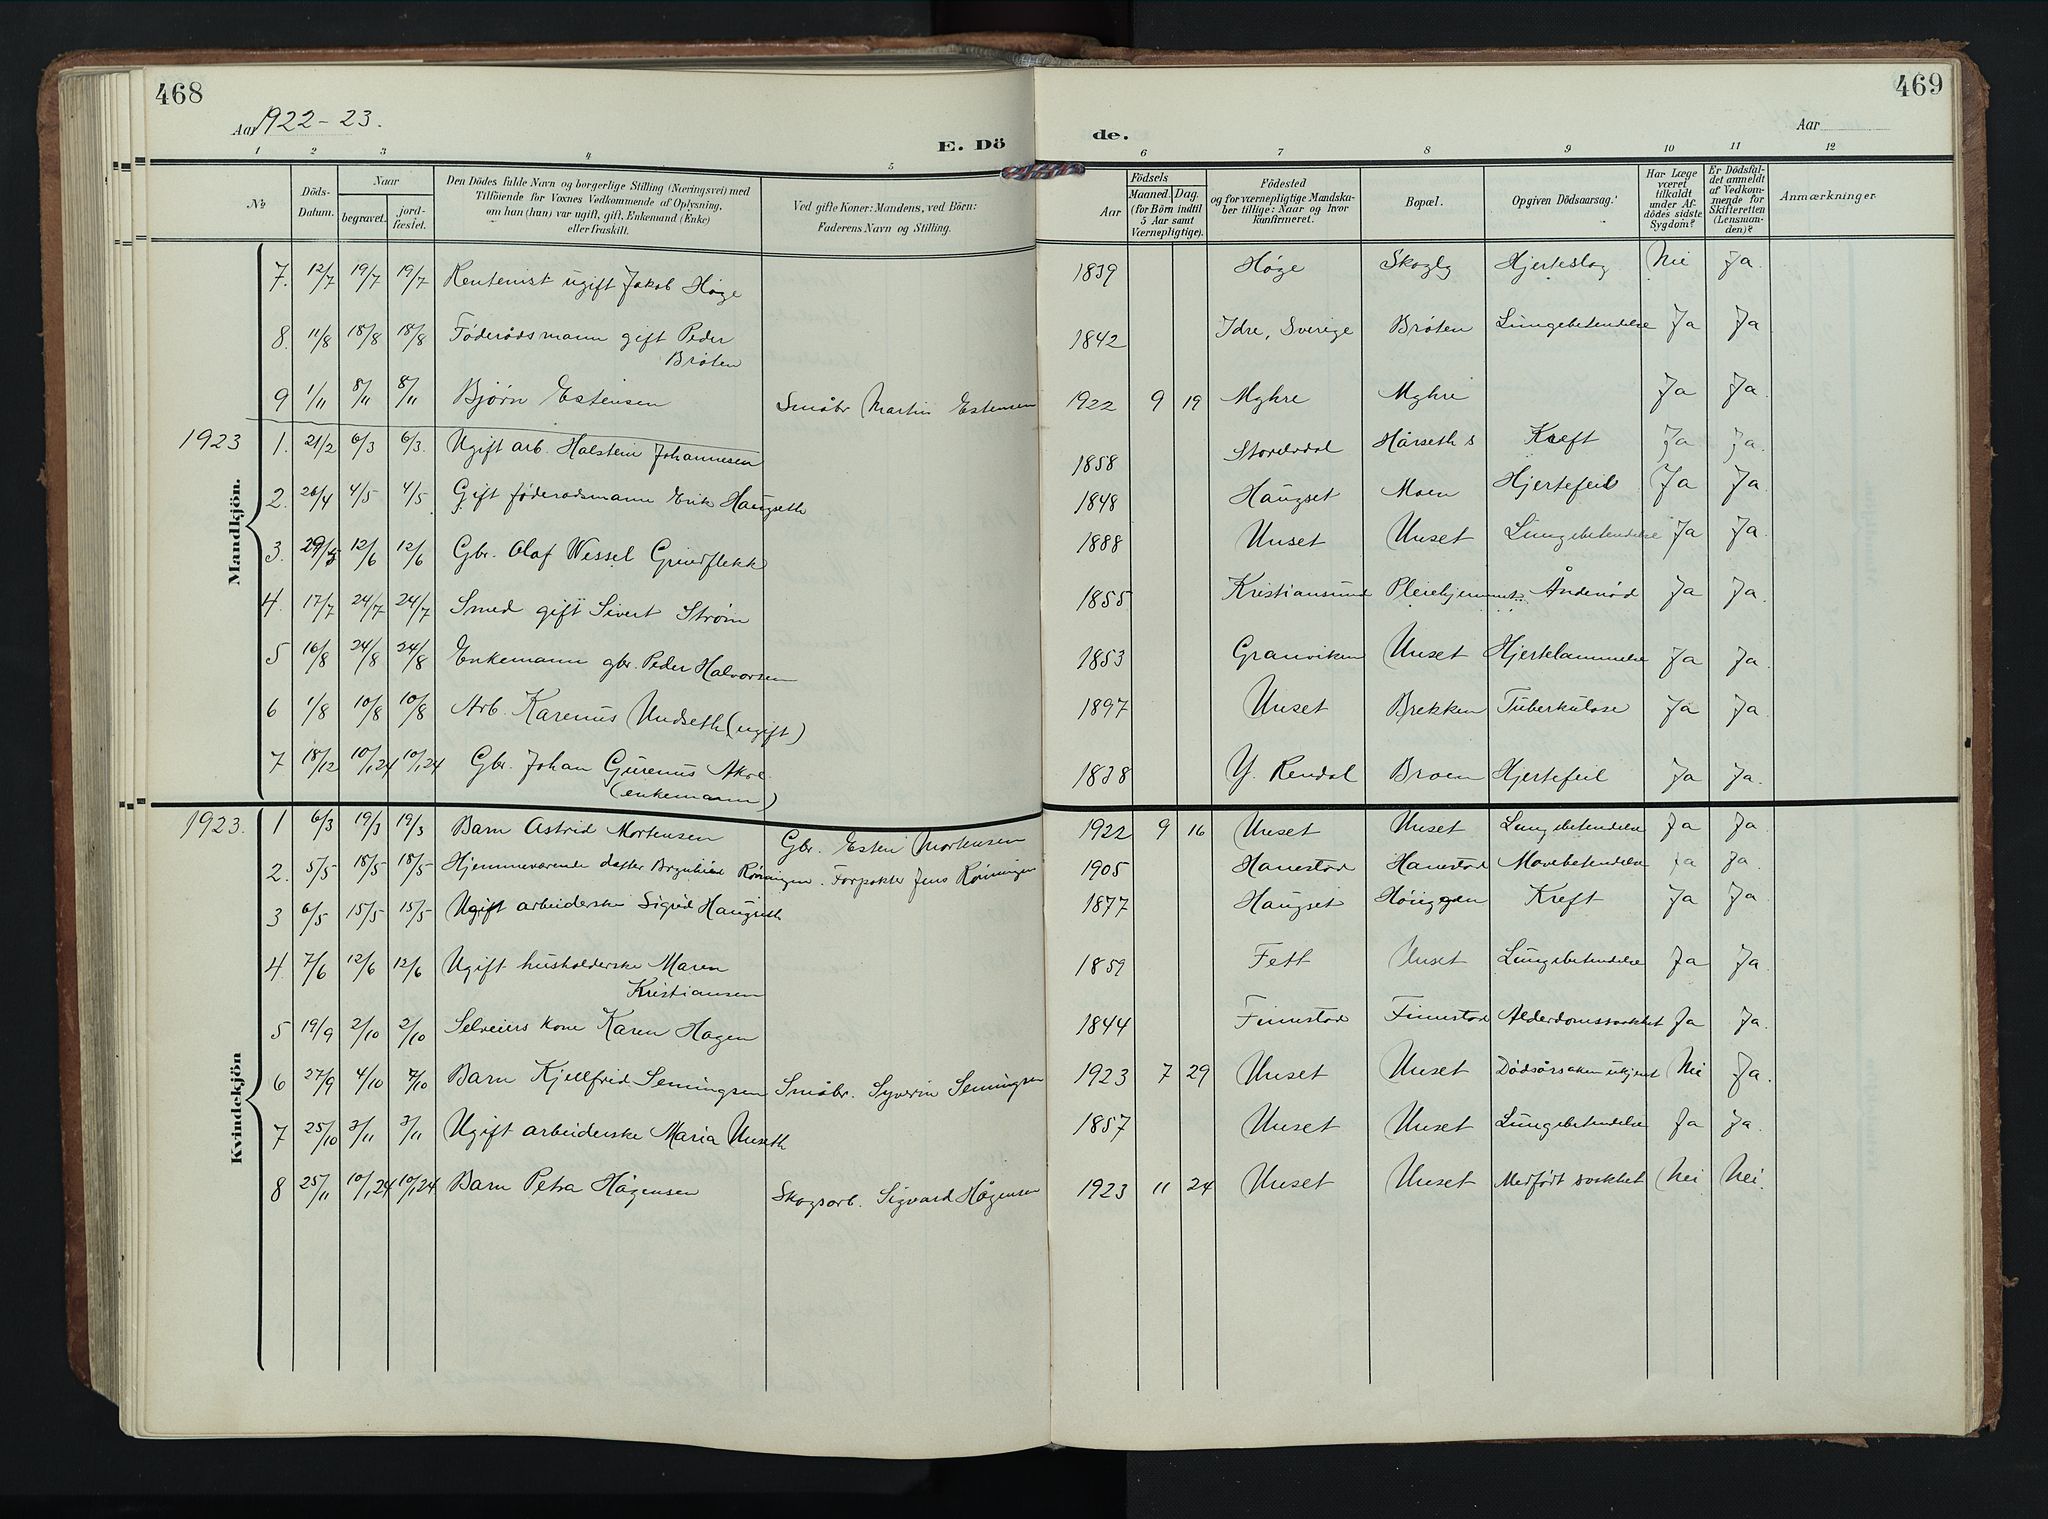 468
Aar 1922-23.
E. Dö
1 2 3 4 5
№
Döds-Datum.
Naar
begravet.
jord-fæstet.
Den Dödes fulde Navn og borgerlige Stilling (Næringsvei) med
Tilföiende for Voxnes Vedkommende af Oplysning,
om han (hun) var ugift, gift, Enkemand (Enke)
eller fraskilt.
Ved gifte Koner: Mandens, ved Börn:
Faderens Navn og Stilling.
Mandkjön.
7. 12/7 19/7 19/7 Rentenist ugift Jakob Høge
8. 11/8 18/8 18/8 Føderådsmann gift Peder
Brøten
9 1/11 8/11 8/11 Bjørn Estensen Småbr Martin Estensen
1923 1. 21/2 6/3 6/3. Ugift arb. Halstein Johannesen
2. 26/4 4/5 4/5 Gift føderadsmann Erik Haugseth
3. 29/5 12/6 12/6 Gbr. Olaf Wessel Grindflekk
4. 17/7 24/7 24/7 Smed gift Sivert Strøm
5 16/8 24/8 24/8 Enkemann gbr. Peder Halvorsen
6 1/8 10/8 10/8 Arb. Karenus Undseth (ugift)
7 18/12 10/1 24 10/1 24 Gbr. Johan Gurenus Akre
(enkemann)
Kvindekjön
1923. 1 6/3 19/3 19/3 Barn Astrid Mortensen Gbr. Esten Mortensen
2. 5/5 18/5 18/5 Hjemmeværende datter Brynhild Rønningen. Forpakter Jens Rønningen
3 6/5 15/5 15/5 Ugift arbeiderske Sigrid Haugseth
4. 7/6 12/6 12/6 Ugift husholderske Maren
Kristiansen
5 19/9 2/10 2/10 Selveiers kone Karen Hagen
6 27/9 4/10 7/10 Barn Kjellfrid Semingsen Småbr. Syverin Semingsen
7 25/10 3/11 3/11 Ugift arbeiderske Maria Unseth
8 25/11 10/1 24 10/1 24 Barn Petra Hågensen Skogsarb. Sigvard Hågensen
469
de.
Aar
6 7 8 9 10 11 12
Födsels
Aar
Maaned. Dag.
(for Börn indtil
5 Aar samt
Værnepligtige).
Födested
og for værnepligtige Mandska-
ber tillige: Naar og hvor
konfirmeret.
Bopæl.
Opgiven Dödsaarsag.
Har Læge
været
tilkaldt
under Af-
dödes sidste
Sygdom?
Er Dödsfal-
det anmeldt
af Vedkom-
mende for
Skifteretten
(Lensman-
den)?
Anmærkninger.
1839 Høge Skogly Hjerteslag Nei Ja.
1842 Idre, Sverige Brøten Lungebetendelse Ja Ja
1922 9 19 Myhre Myhre Ja Ja.
1858 Storelvdal Hårseths Kreft Ja Ja.
1848 Haugset Moen Hjertefeil Ja Ja.
1888 Unset Unset Lungebetendelse Ja Ja.
1855 Kristiansund Pleiehjemmet Åndenød Ja Ja.
1853 Granviken Unset Hjertelammelse Ja Ja.
1897 Unset Brekken Tuberkulose Ja Ja.
1838 Y. Rendal Broen Hjertefeil Ja Ja.
1922 9 16 Unset Unset Lungebetendelse Ja Ja.
1905 Hanestad Hanestad Mavebetendelse Ja Ja.
1877 Haugset Høiggen Kreft Ja Ja.
1859 Fett Unset Lungebetendelse Ja Ja.
1844 Finnstad Finnstad Alderdomssvakhet Ja Ja.
1923 7 29 Unset Unset Dødsårsaken ukjent Nei Ja.
1857 Unset Unset Lungebetendelse Ja Ja.
1923 11 24 Unset Unset Medfødt svakhet Nei Nei.